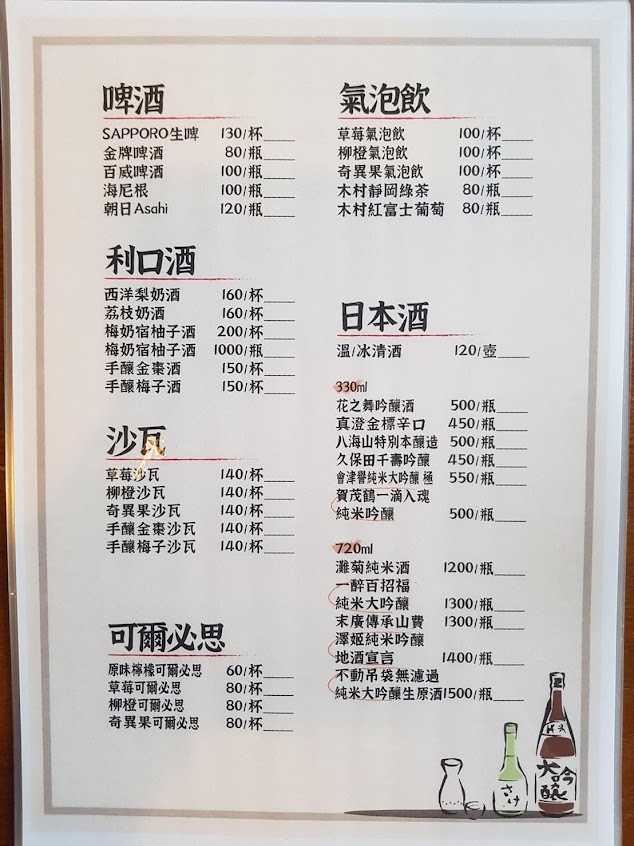 啤酒
SAPPORO生啤 130/杯
金牌啤酒 80/瓶
百威啤酒 100/瓶
海尼根 100/瓶
朝日Asahi 120/瓶
利口酒
西洋梨奶酒 160/杯
荔枝奶酒 160/杯
梅奶宿柚子酒 200/杯
梅奶宿柚子酒 1000/瓶
手釀金棗酒 150/杯
手釀梅子酒 150/杯
沙瓦
草莓沙瓦 140/杯
柳橙沙瓦 140/杯
奇異果沙瓦 140/杯
手釀金棗沙瓦 140/杯
手釀梅子沙瓦 140/杯
可爾必思
原味檸檬可爾必思 60/杯
草莓可爾必思 80/杯
柳橙可爾必思 80/杯
奇異果可爾必思 80/杯
氣泡飲
草莓氣泡飲 100/杯
柳橙氣泡飲 100/杯
奇異果氣泡飲 100/杯
木村靜岡綠茶 80/瓶
木村紅富士葡萄 80/瓶
日本酒
溫/冰清酒 120/壺
330ml
花之舞吟釀酒 500/瓶
真澄金標辛口 450/瓶
八海山特別本釀造 500/瓶
久保田千壽吟釀 450/瓶
會津譽純米大吟釀 極 550/瓶
賀茂鶴一滴入魂
純米吟釀 500/瓶
720ml
灘菊純米酒 1200/瓶
一醉百招福
純米大吟釀 1300/瓶
末廣傳承山費 1300/瓶
澤姬純米吟釀
地酒宣言 1400/瓶
不動吊袋無濾過
純米大吟釀生原酒1500/瓶
純米
大吟釀
さけ